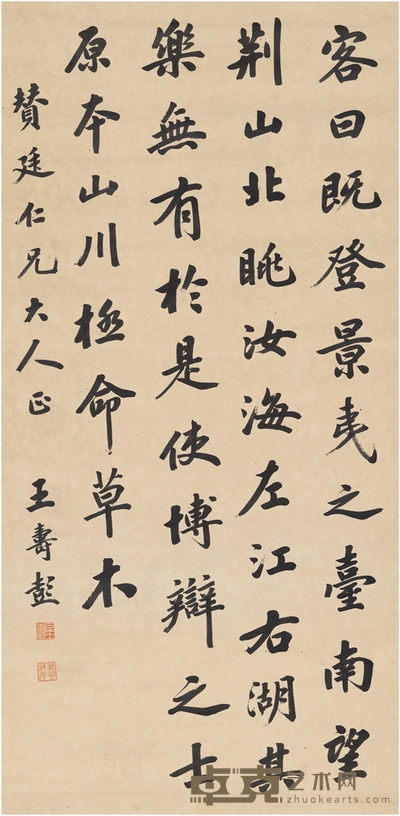 客曰既登景夷之臺南望
荆山北眺汝海左江右湖其
樂無有於是使博辯之士
原本山川極命草木
贊廷仁兄大人正
王壽彭
卓克艺术网
zhuokearts.com